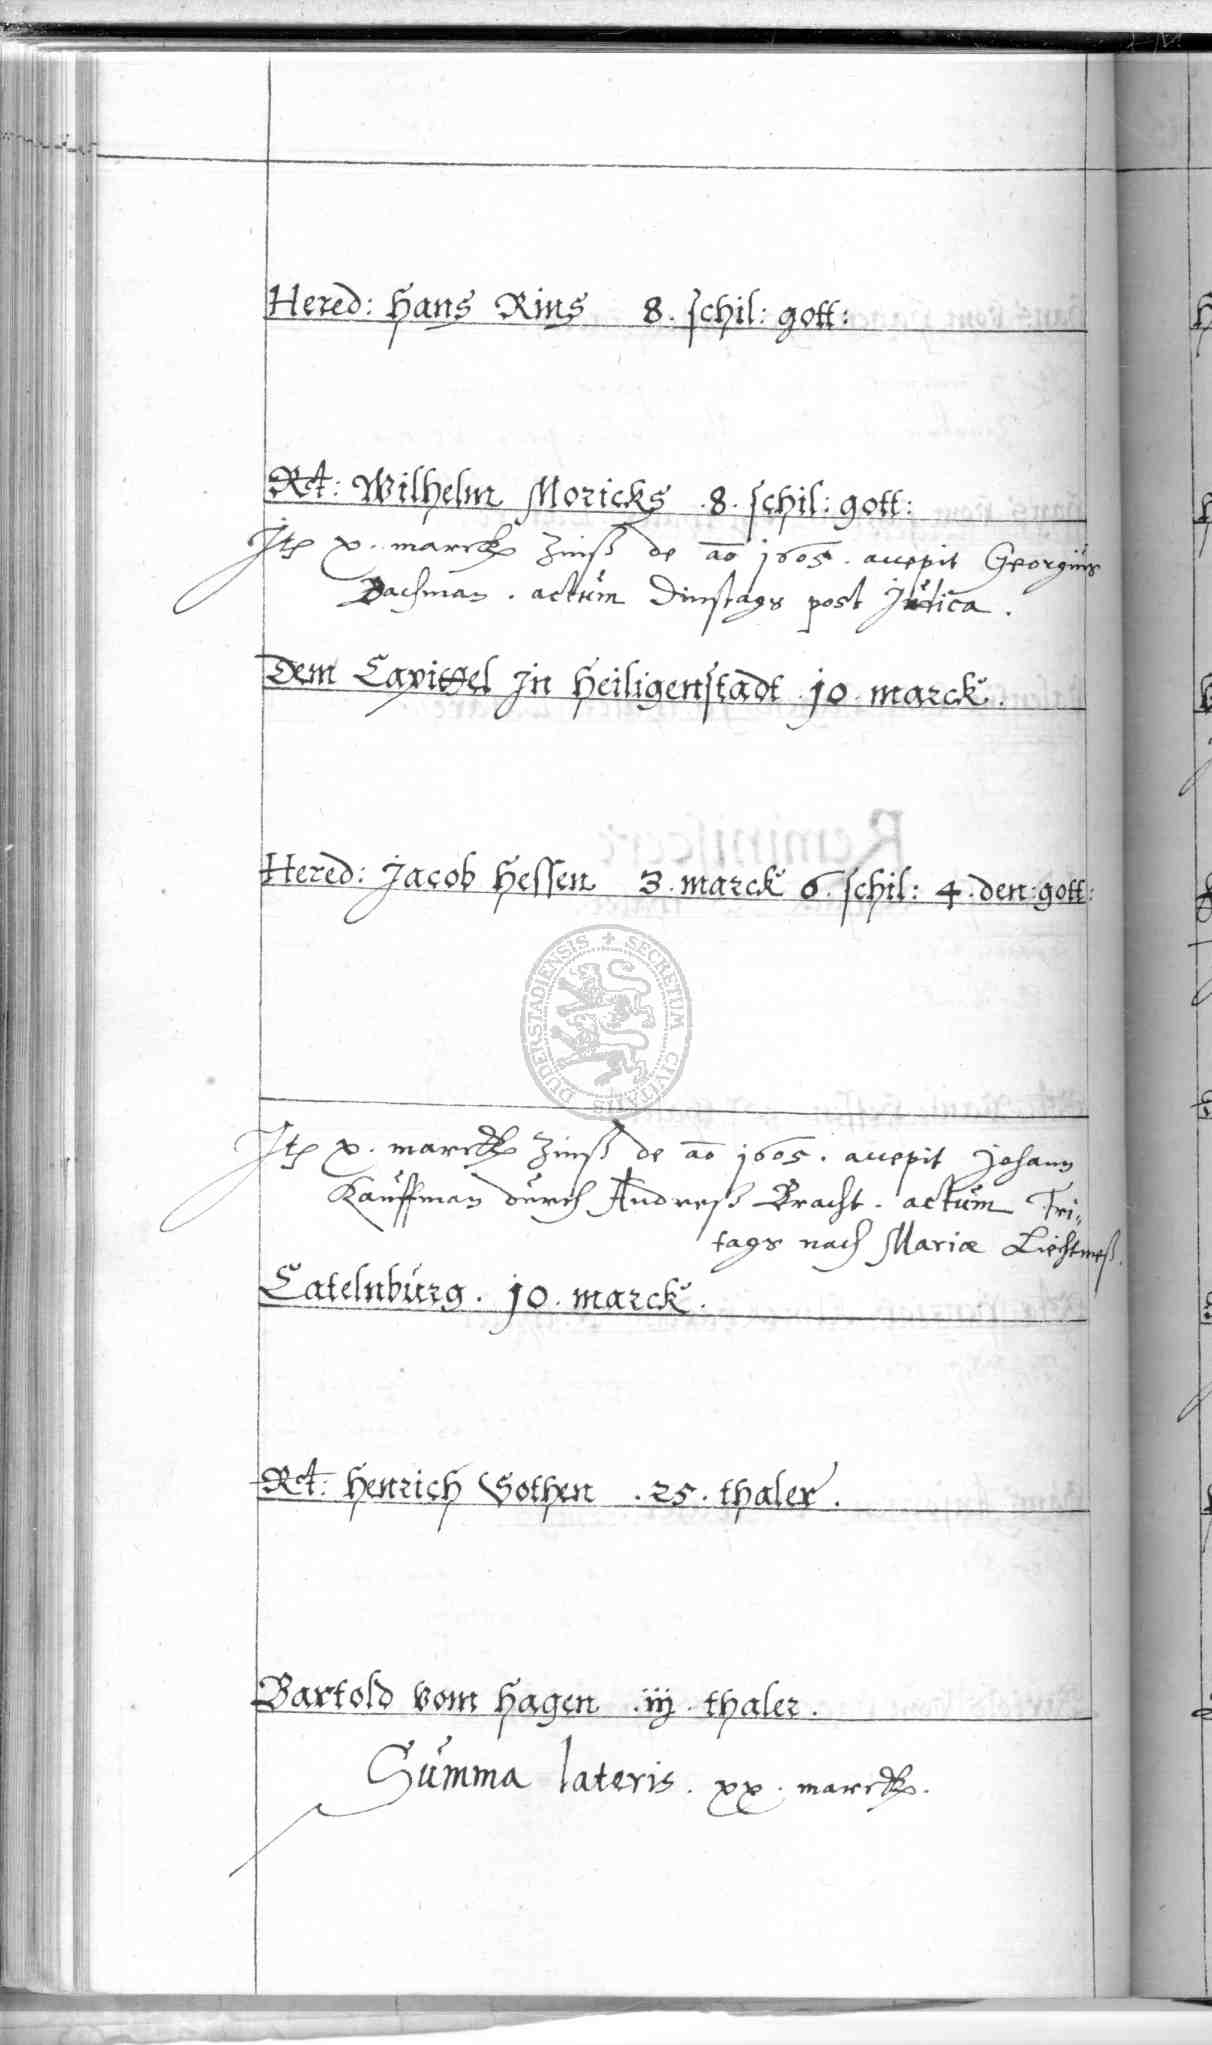 Hered: Hans Rins 8. schil: gott:
Rct: Wilhelm Moricks .8. schil: gott:
Jtem x. marck Zinß de ao 1605. accepit Georgius
Bachman. actum Dinstags post Judica.
Dem Capittel Jn Heiligenstadt .10. marck.
Hered: Jacob Hessen 3. marck 6. schil: 4. den: gott:
DUDERSTADIENSIS + SECRETUM CIVITATIS
Jtem x. marck Zinß de ao 1605. accepit Johann
Kauffman durch Andreß Bracht. actum Fri=
tags nach Mariæ Liechtmeß.
Catelnburg. 10. marck.
Rct: Henrich Gothen .25. thaler.
Bartold vom Hagen .iij. thaler.
Summa lateris. xx. marck.